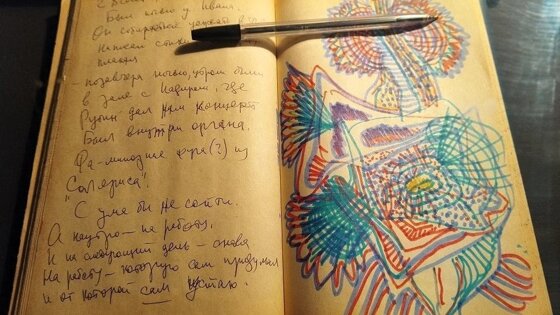 Был ночью у Ивана.
Он собирался уезжать в
Написал стихи
плакал
- позавчера ночью, утром были
в зале с Надирем, где
Рубин дал нам концерт
Был внутри органа.
Фа-минорные (?) из
"Соляриса".
С ума бы не сойти.
А наутро – на работу.
И на следующий день – снова
На работу – которую сам придумал
и от которой сам устаю.